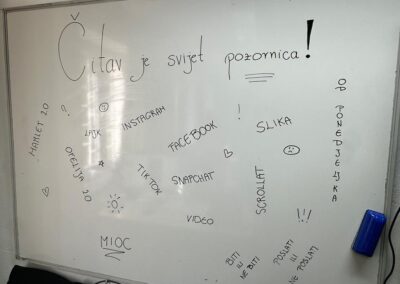 Čitav je svijet pozornica!
HAMLET 2.0
?
LAJK
INSTAGRAM
FACEBOOK
!
SLIKA
OD PONEDJELJKA
OFELIJA 2.0
TIK TOK
SNAPCHAT
SCROLLAT
VIDEO
!!!
MIOC
BITI
ILI
NE BITI
POSLATI
ILI
NE POSLATI